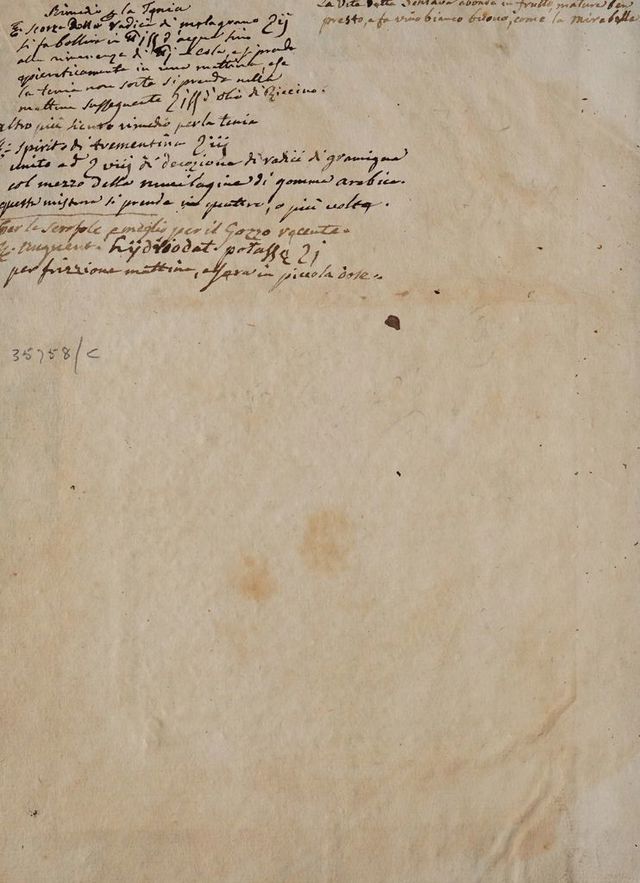 Rimedio p la Tenia
scorza delle radici di melagrano ℥ij
si fa bollire in ℔ij ß d'acqua sino
alla rimanenza di ℔j si cola, e si prende
epicraticamente in una mattina, e se
la tenia non sorte si prende nella
mattina susseguente ℥i ß d'olio di Riccino.
altro più sicuro rimedio per la tenia
spirito di trementina ℥iij
unito ad ℥viij di decozione di radici di gramigna
col mezzo della mucilagine di gomma arabica.
questa mistura si prende in quattro, o più volte.
Per le scrofole e meglio per il Gozzo recente.
Unguent. hijdriodat. potassæ ℥j
per frizzione mattina, e sera in piccola dose.
La Vite della abonda in frutto, matura ben
presto, e fa vino bianco buono, come la mirabelle
35758/C